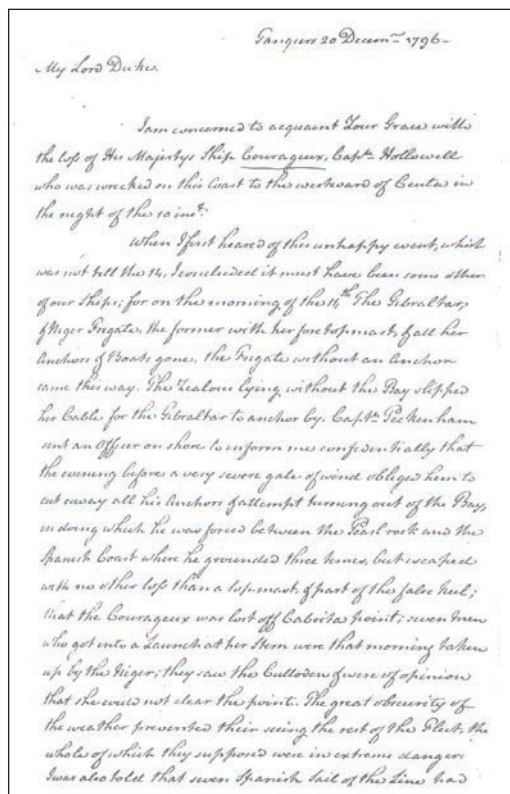 Tangiers 20 Decem.r 1796 -
My Lord Duke.
I am concerned to acquaint Your Grace with
the loss of His Majestys Ship Courageux, Captn. Hollowell
who was wrecked on this Coast to the westward of Ceuta in
the night of the 10 inst.
When I first heard of this unhappy event, which
was not till the 14, I concluded it must have been some other
of our Ships; for on the morning of the 14th The Gibraltar,
& Niger Frigate, the former with her fore topmast, & all her
Anchors & Boats gone, the Frigate without an Anchor
came this way. The Zealous lying without the Bay slipped
her Cable for the Gibraltar to anchor by. Captn. Peckenham
sent an Officer on shore to inform me confidentially that
the evening before a very severe gale of wind obliged him to
cut away all his Anchors & attempt turning out of the Bay,
in doing which he was forced between the Pearl rock and the
Spanish Coast where he grounded three times, but escaped
with no other loss than a topmast & part of the false keel;
that the Courageux was lost off Cabrita point; seven men
who got into a Launch at her Stern were that morning taken
up by the Niger; they saw the Culloden & were of opinion
that she could not clear the point. The great obscurity of
the weather prevented their seeing the rest of the Fleet, the
whole of which they supposed were in extreme danger.
I was also told that seven Spanish Sail of the Line had